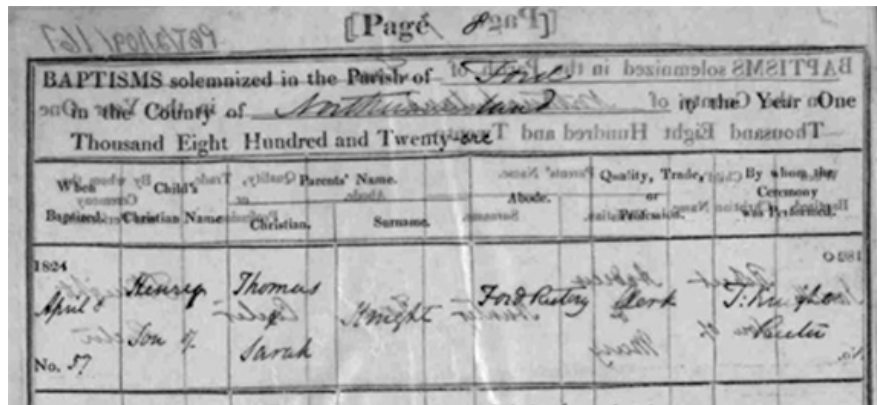 [Page 8]
BAPTISMS solemnized in the Parish of Ford
in the County of Northumberland in the Year One
Thousand Eight Hundred and Twenty-one
When Baptized. Child's Christian Name. Parents' Name. Christian. Surname. Abode. Quality, Trade, or Profession. By whom the Ceremony was Performed.
1824
April 8 Henry Thomas
& Knight Ford Rectory Clerk T. Knight
Son of Sarah Rector
No. 57